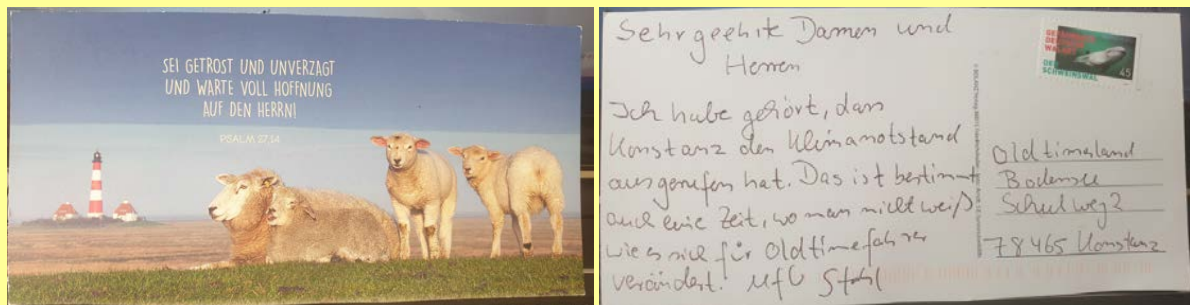 SEI GETROST UND UNVERZAGT
UND WARTE VOLL HOFFNUNG
AUF DEN HERRN!
PSALM 27,14
Sehr geehrte Damen und
Herren
Ich habe gehört, dass
Konstanz den Klimanotstand
ausgerufen hat. Das ist bestimmt
auch eine Zeit, wo man nicht weiß
wie es sich für Oldtimerfahrer
verändert. MfG Stahl
DER
SCHWEINSWAL
45
Oldtimerland
Bodensee
Schulweg 2
78465 Konstanz